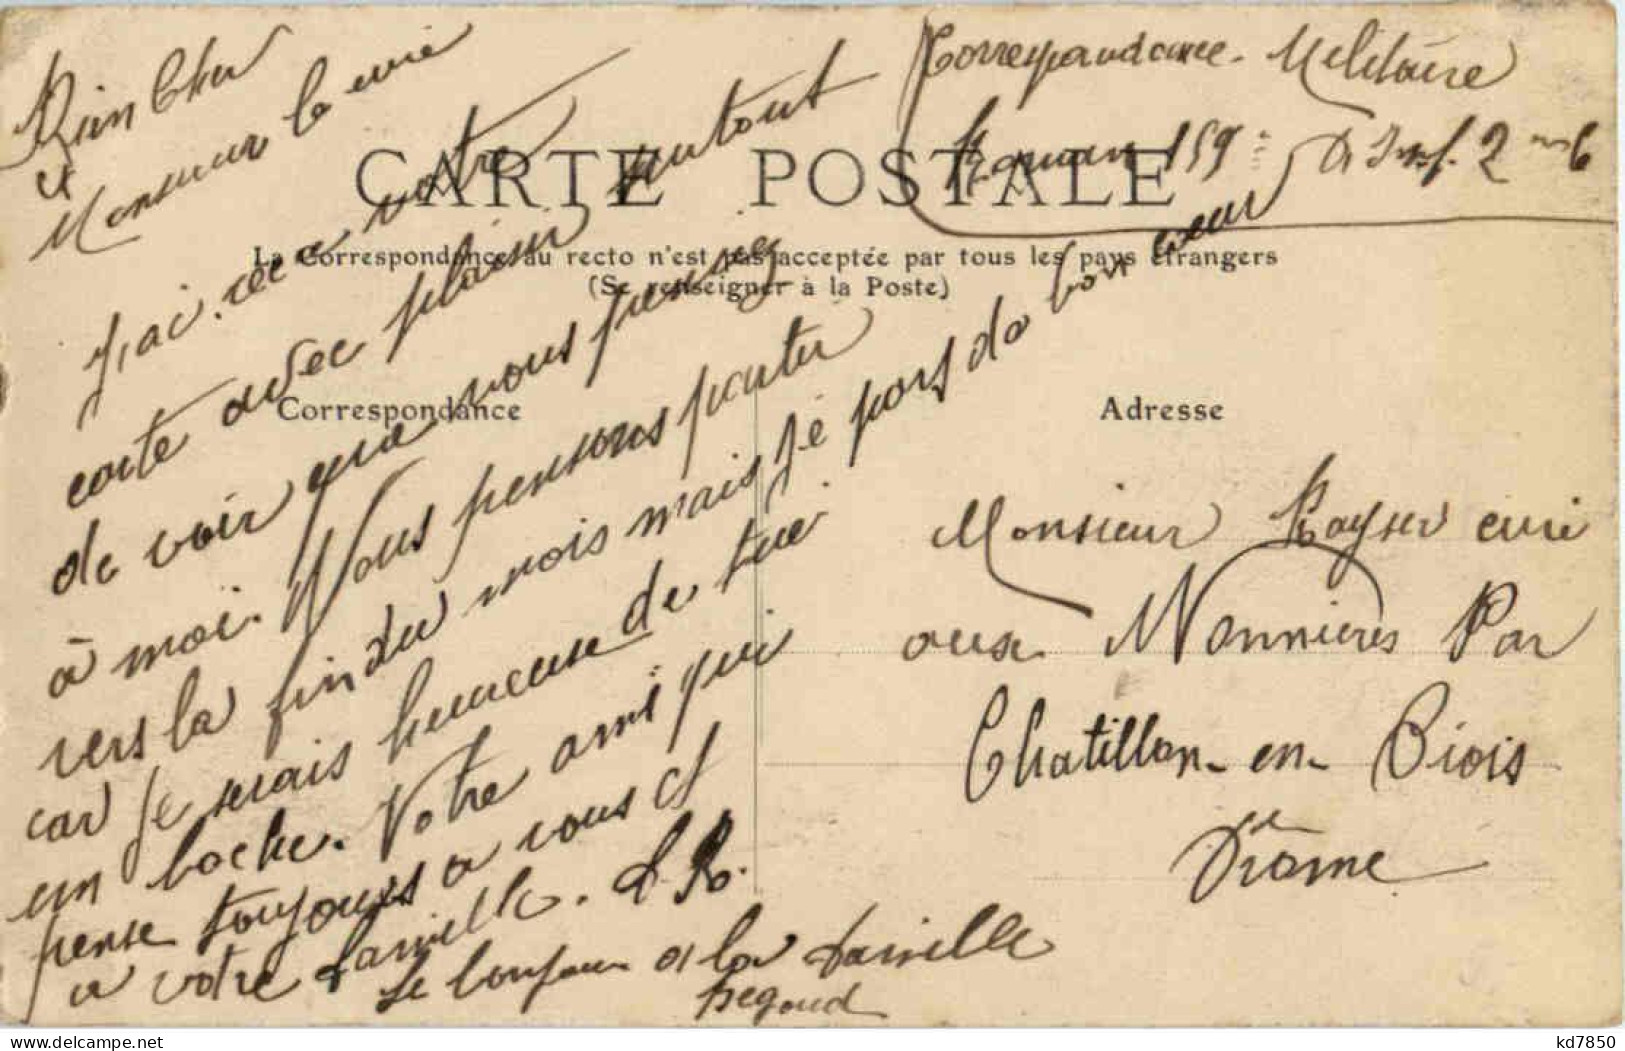 Bien Cher
et
Monsieur le curé
J,ai. reca votre
carte avec plaisir surtout
de voir que vous pensiez
à moi. Nous pensons partir
vers la fin du mois mais je pars da bon cœur
car je serais heureuse de tué
un boche. Votre ami qui
pense toujours a vous et
a votre famille.
Le bonjour a la famille
Correspondance. Militaire
Romans 159 Inf. 2
CARTE POSTALE
La Correspondance au recto n'est pas acceptée par tous les pays étrangers
(Se renseigner à la Poste)
Correspondance
Adresse
Monsieur Kayser curé
aux Nonnières Par
Chatillon-en-Diois
Drôme
kd7850